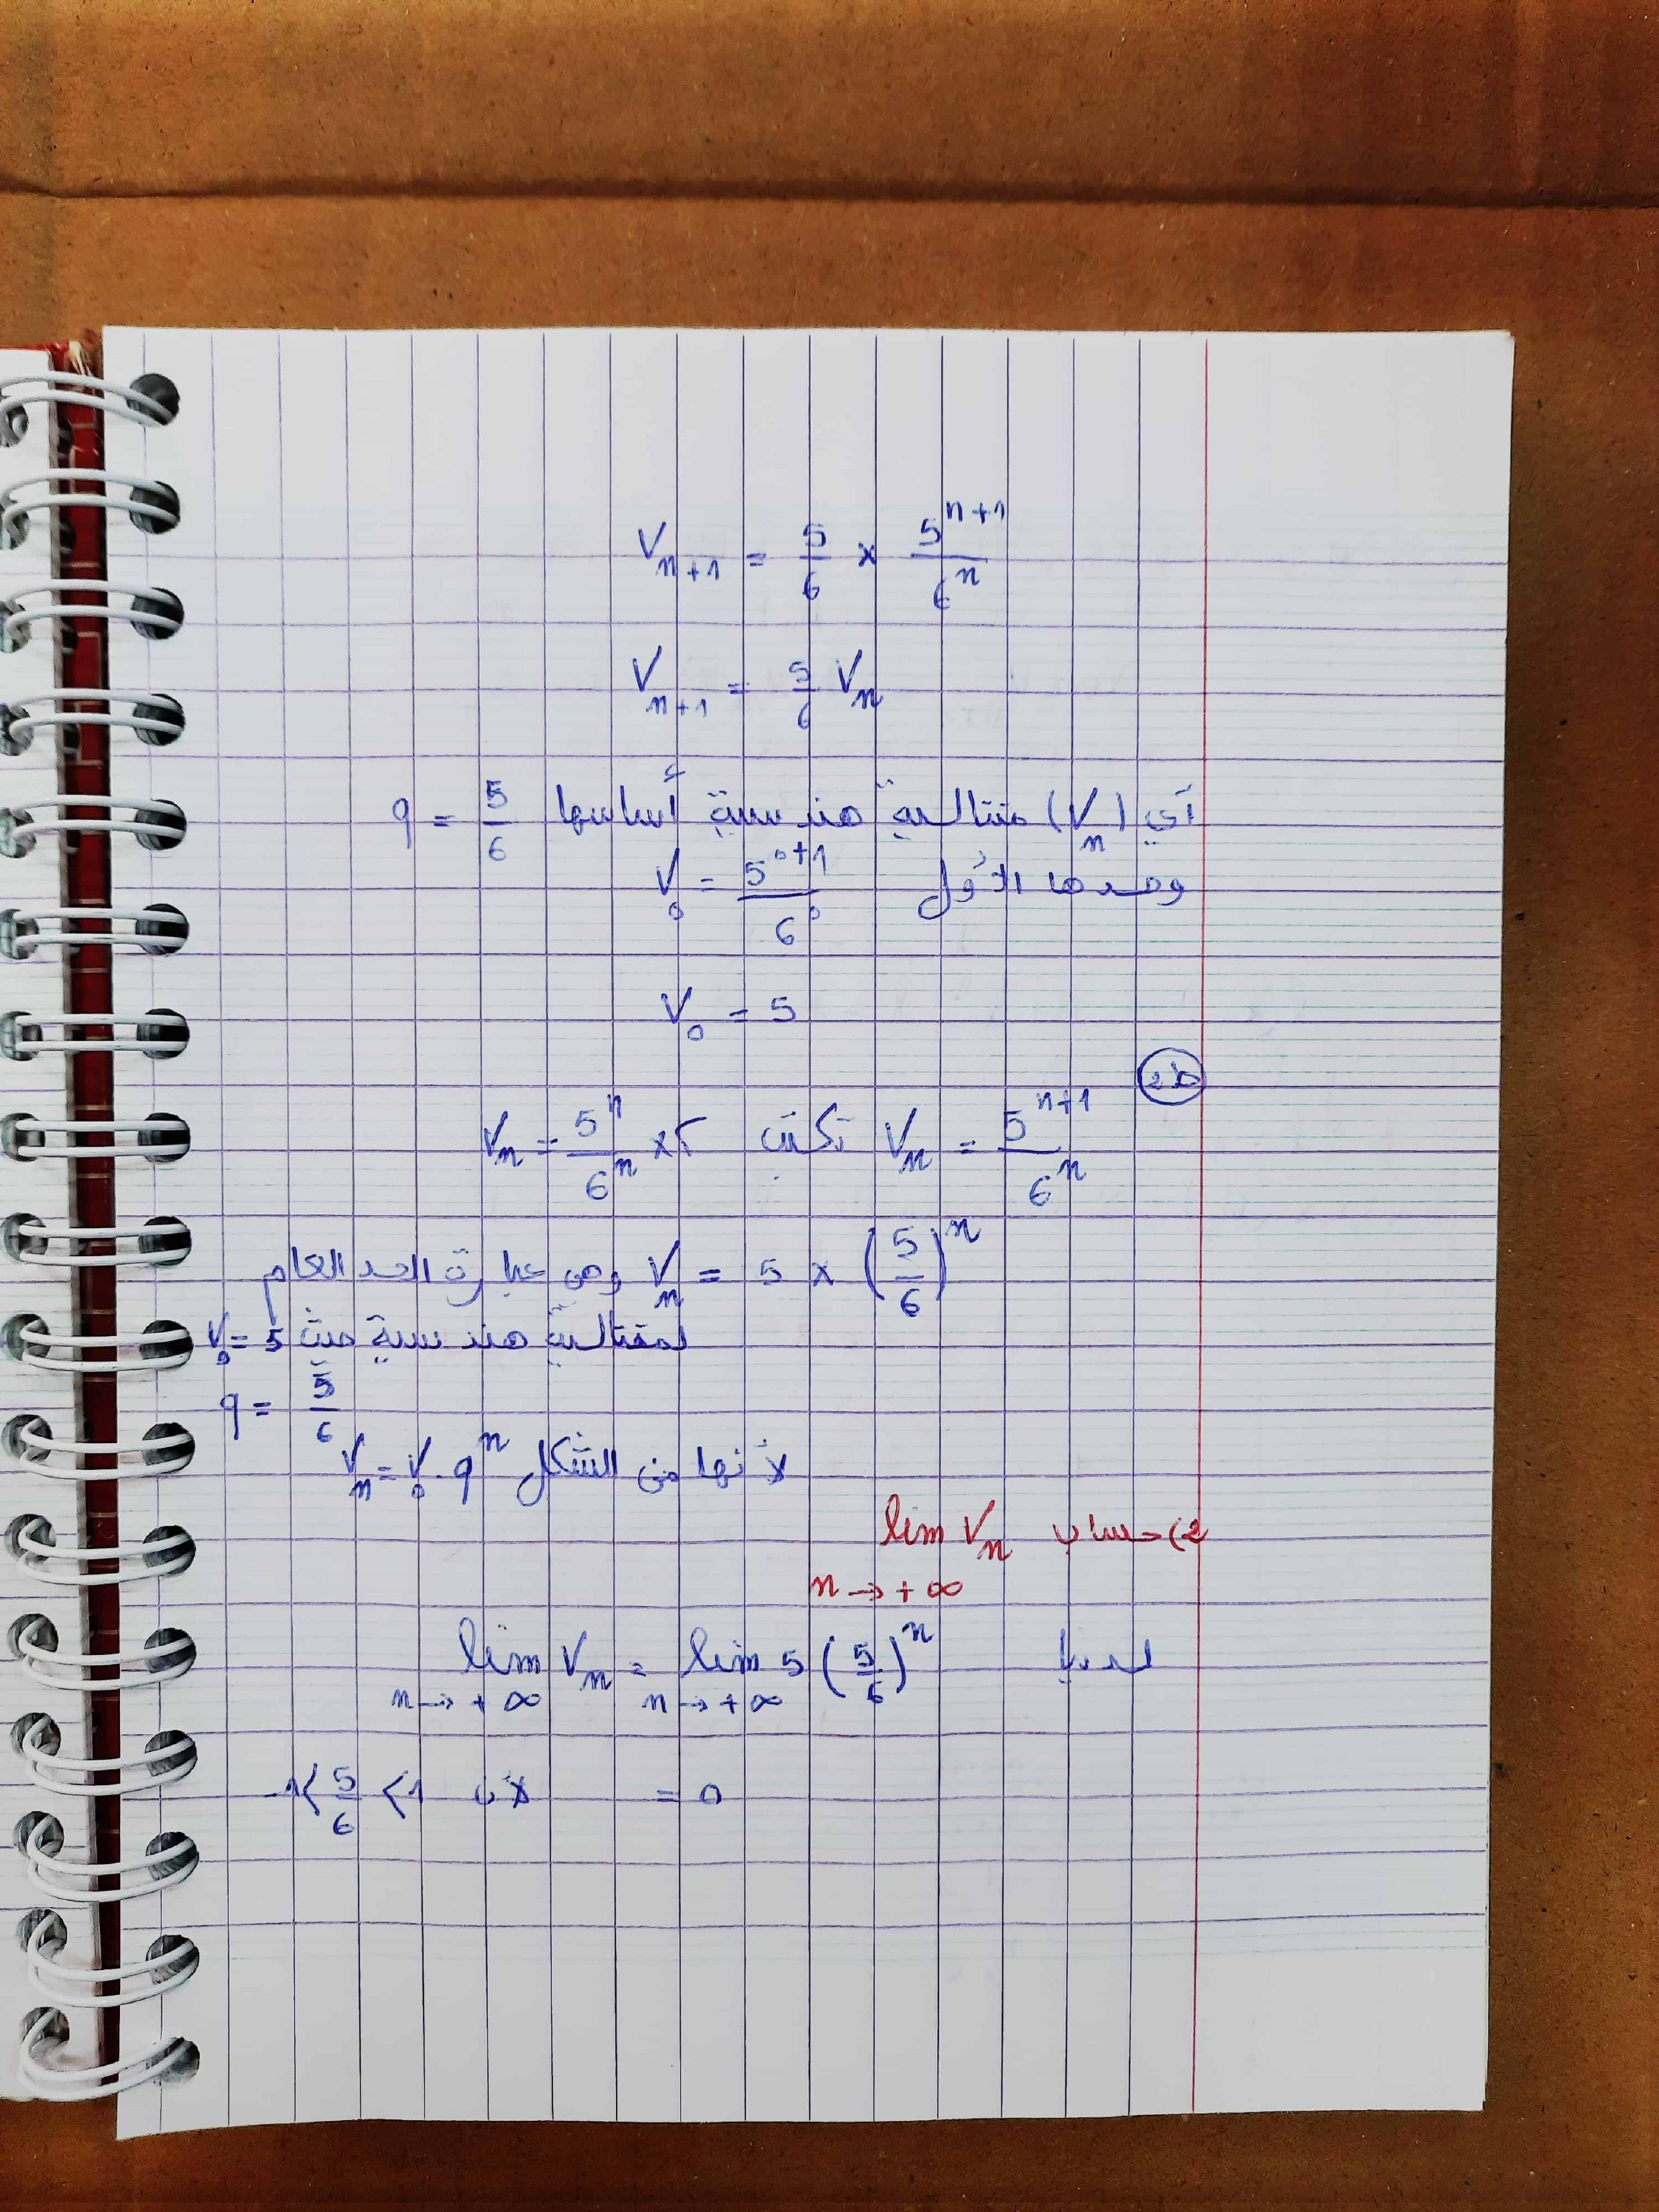 V_{n+1} = \frac{5}{6} × \frac{5^{n+1}}{6^n}
V_{n+1} = \frac{5}{6} V_n
أي (V_n) متتالية هندسية أساسها q = \frac{5}{6}
وحدها الأول V_0 = \frac{5^{0+1}}{6^0}
V_0 = 5
ط2
V_n = \frac{5^{n+1}}{6^n} تكتب V_n = \frac{5^n}{6^n} ×
V_n = 5 × (\frac{5}{6})^n وهي عبارة الحد العام
لمتتالية هندسية حيث V_0 = 5
q = \frac{5}{6}
لأنها من الشكل V_n = V_0 . q^n
2) حساب lim V_n
n → +∞
لدينا lim V_n = lim 5 (\frac{5}{6})^n
n → +∞ n → +∞
= 0 لأن -1 < \frac{5}{6} < 1